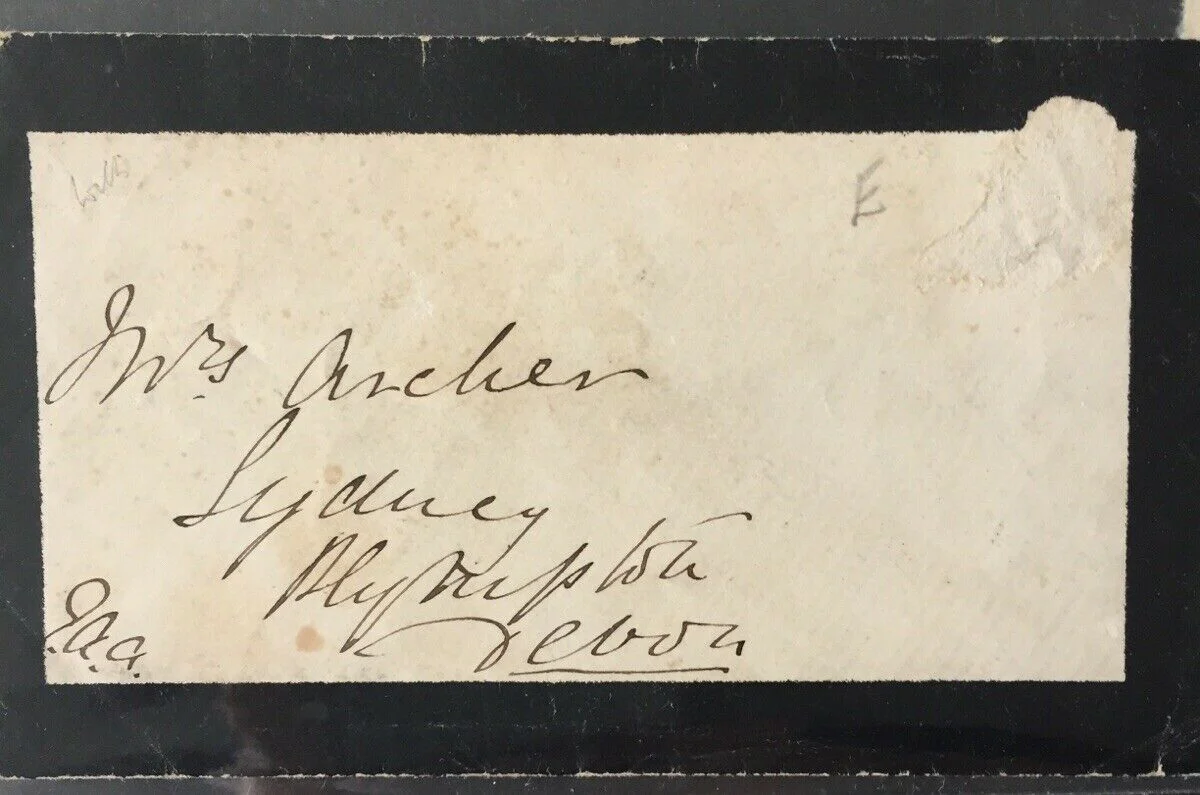 E
Mrs. Archer
Sydney
Plympton
Devon
E.a.a.